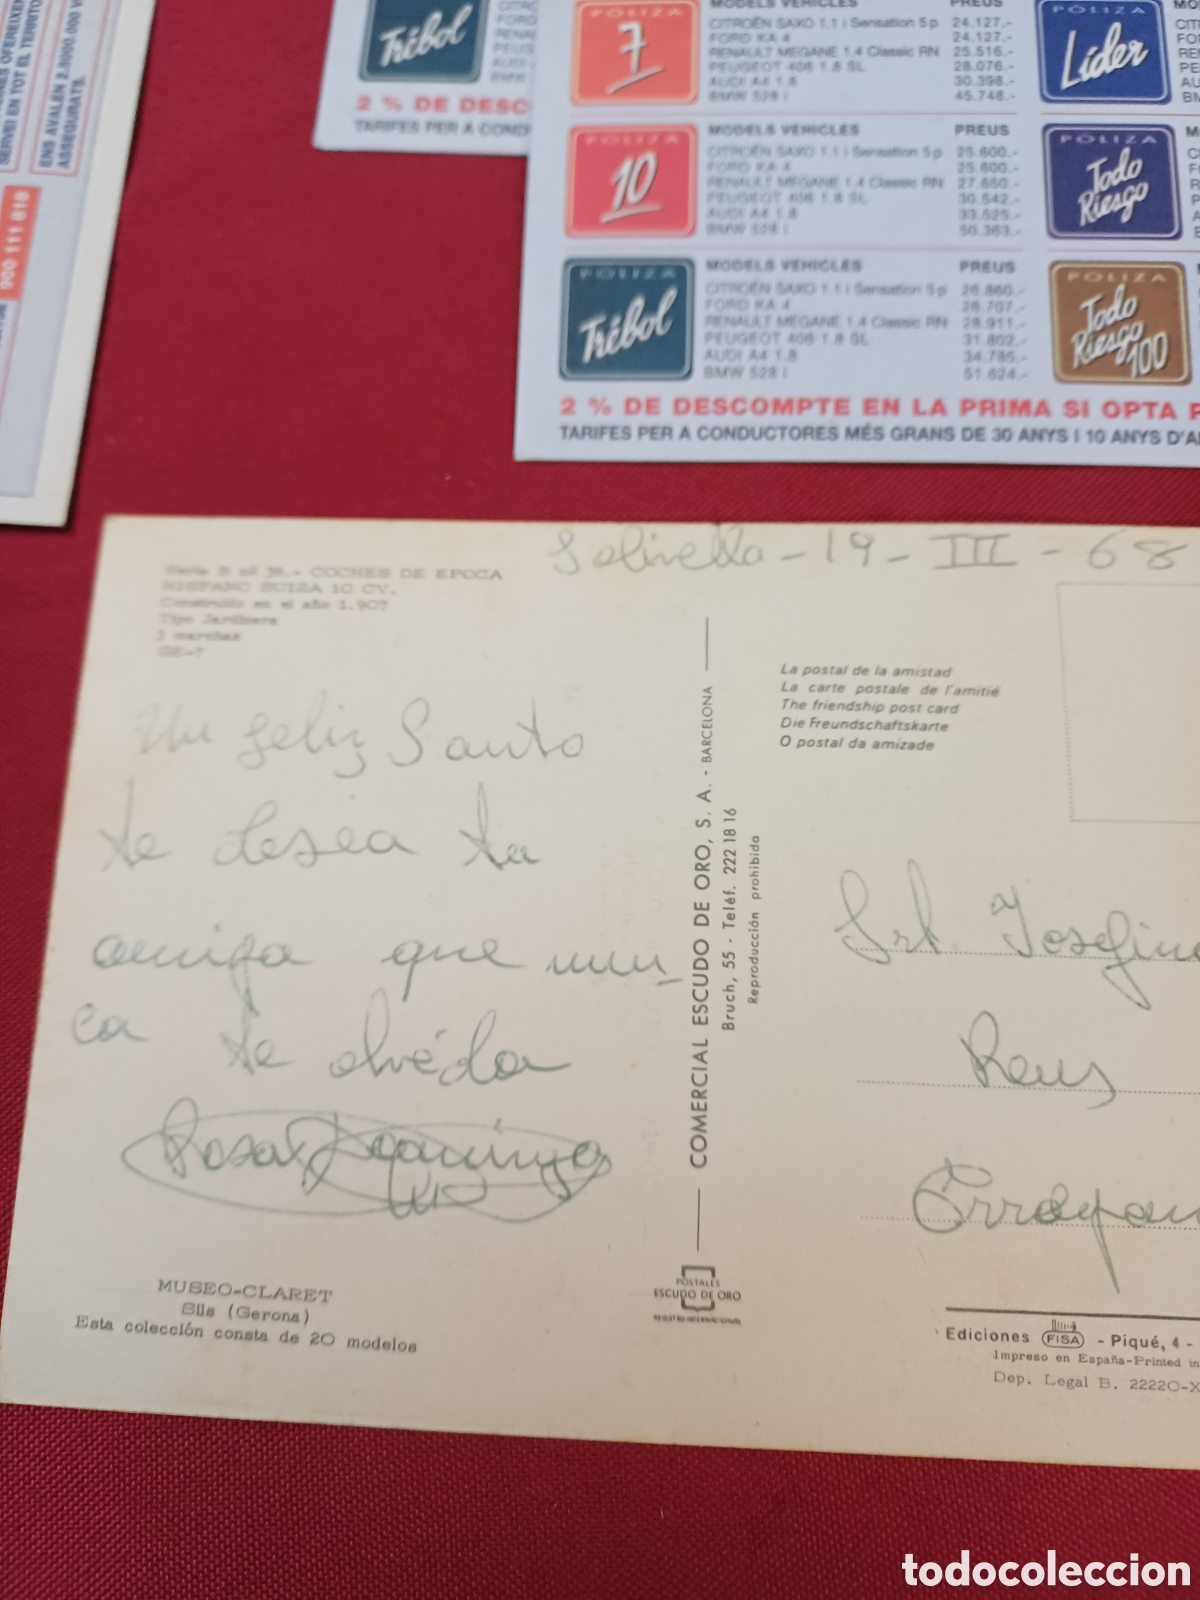 SERVEI EN TOT EL TERRITO
ENS AVALEN 2.8000.000 V
ASSEGURATS.
900 111 810
Trébol
2 % DE DESC
TARIFES PER A COND
POLIZA
7
MODELS VEHICLES PREUS
CITROËN SAXO 1.1 i Sensation 5p 24.127.-
FORD KA 4 24.127.-
RENAULT MEGANE 1.4 Classic RN 25.516.-
PEUGEOT 406 1.8 SL 28.076.-
AUDI A4 1.8 30.398.-
BMW 528 i 45.748.-
POLIZA
Líder
POLIZA
10
MODELS VEHICLES PREUS
CITROËN SAXO 1.1 i Sensation 5p 25.600.-
FORD KA 4 25.600.-
RENAULT MEGANE 1.4 Classic RN 27.650.-
PEUGEOT 406 1.8 SL 30.542.-
AUDI A4 1.8 33.525.-
BMW 528 i 50.363.-
POLIZA
Todo
Riesgo
POLIZA
Trébol
MODELS VEHICLES PREUS
CITROËN SAXO 1.1 i Sensation 5p 26.860.-
FORD KA 4 26.707.-
RENAULT MEGANE 1.4 Classic RN 28.911.-
PEUGEOT 406 1.8 SL 31.802.-
AUDI A4 1.8 34.785.-
BMW 528 i 51.624.-
POLIZA
Todo
Riesgo
100
2 % DE DESCOMPTE EN LA PRIMA SI OPTA P
TARIFES PER A CONDUCTORES MÉS GRANS DE 30 ANYS I 10 ANYS D'A
Solivella - 19 - III - 68
Serie B nº 36.- COCHES DE EPOCA
HISPANO SUIZA 10 CV.
Construido en el año 1.907
Tipo Jardinera
3 marchas
GE-7
Un feliz Santo
te desea tu
amiga que nun
ca te olvída
Rosa
MUSEO-CLARET
Sils (Gerona)
Esta colección consta de 20 modelos
COMERCIAL ESCUDO DE ORO, S. A. - BARCELONA
Bruch, 55 - Teléf. 222 18 16
Reproducción prohibida
POSTALES
ESCUDO DE ORO
REGISTRO INTERNACIONAL
La postal de la amistad
La carte postale de l'amitié
The friendship post card
Die Freundschaftskarte
O postal da amizade
Srt. Josefina
Reus
Ediciones FISA - Piqué, 4 -
Impreso en España-Printed in
Dep. Legal B. 22220-X
todocoleccion